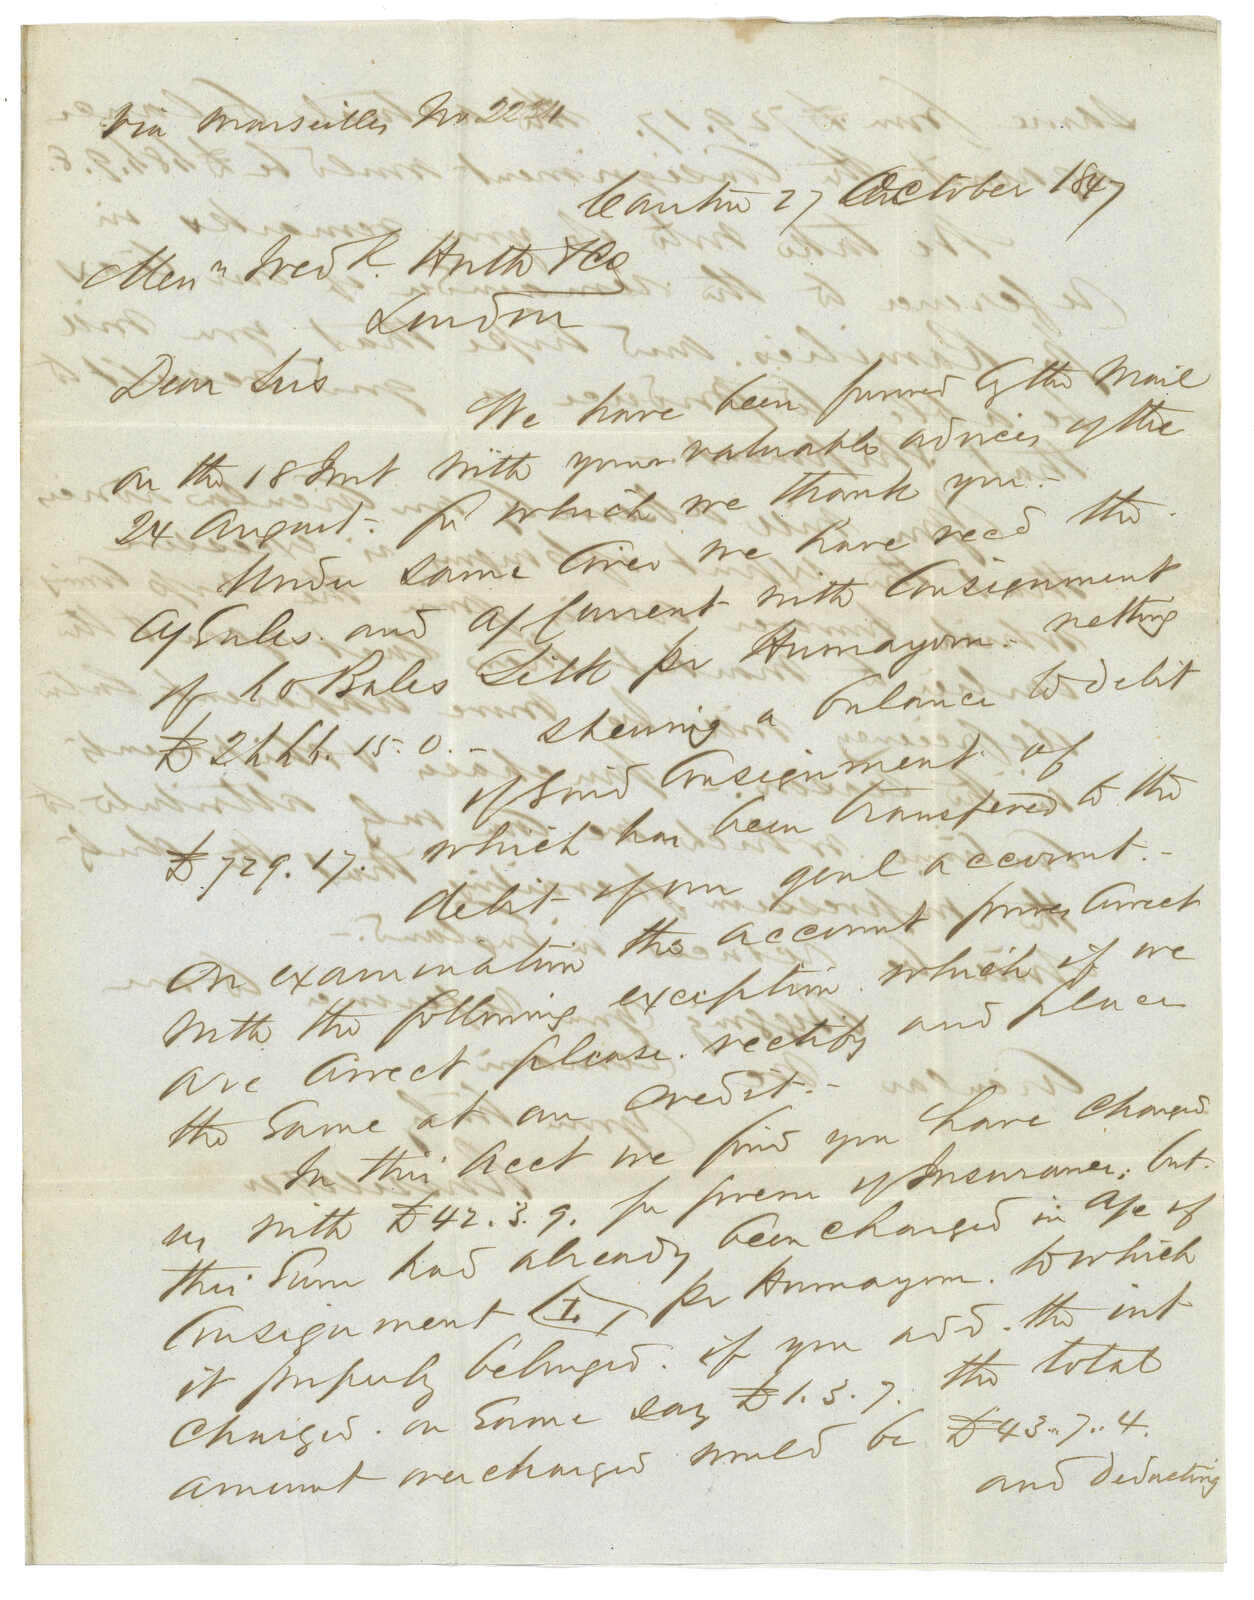 Via Marseilles No. 2234
Canton 27 October 1847
Messrs Fredk. Huth & Co
London
Dear Sirs
We have been favored by the Mail
on the 18 Inst with your valuable advices of the
24 August - for which we thank you -
Under same cover we have recd the
A/Sales and a/Current with Consignment
of 60 Bales Silk per Humayoon - netting
£ 2666. 15. 0. - shewing a balance to debit
of said Consignment of
£ 729. 17. which has been transfered to the
debit of our genl account. -
On examination the account proves correct
with the following exception which if we
are correct please rectify and place
the same at our credit. -
In this acct we find you have charged
us with £ 42. 3. 9. for prem of Insurance; but
this sum had already been charged in a/c of
Consignment I. per Humayoon. to which
it properly belonged. if you add the int
charged on same say £ 1. 3. 7. the total
amount overcharged would be £ 43. 7. 4.
and deducting